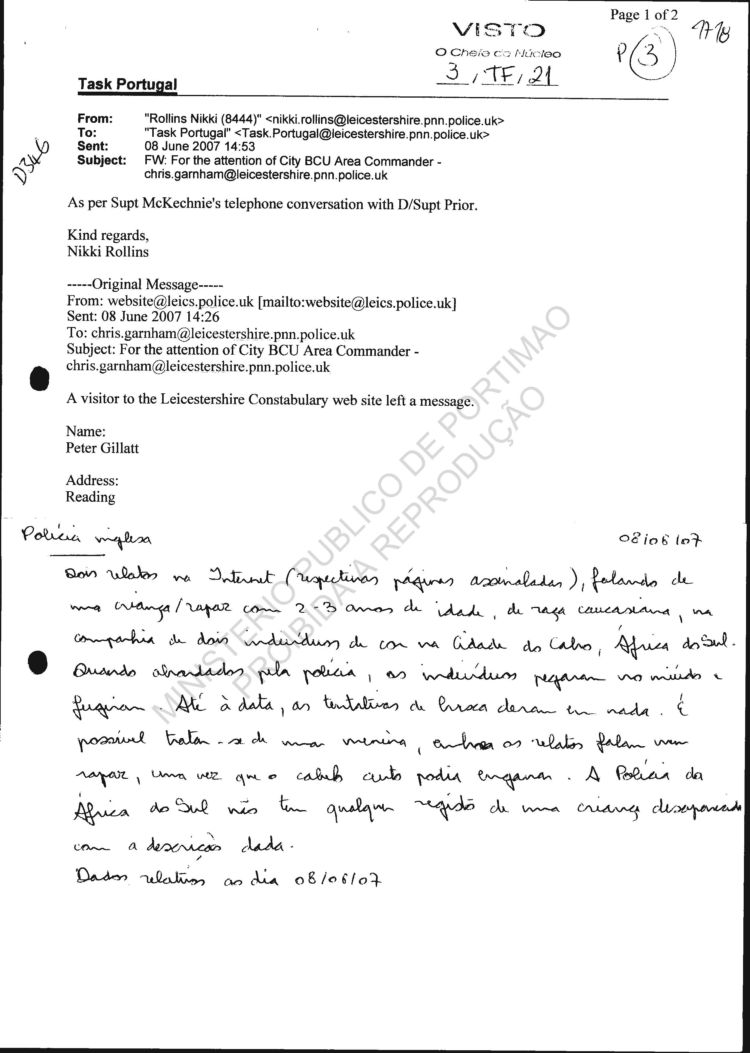 Page 1 of 2
VISTO
O Chefe do Núcleo
3 / TF / 21
P (3)
Task Portugal
From: "Rollins Nikki (8444)" <nikki.rollins@leicestershire.pnn.police.uk>
To: "Task Portugal" <Task.Portugal@leicestershire.pnn.police.uk>
Sent: 08 June 2007 14:53
Subject: FW: For the attention of City BCU Area Commander -
chris.garnham@leicestershire.pnn.police.uk
D346
As per Supt McKechnie's telephone conversation with D/Supt Prior.
Kind regards,
Nikki Rollins
-----Original Message-----
From: website@leics.police.uk [mailto:website@leics.police.uk]
Sent: 08 June 2007 14:26
To: chris.garnham@leicestershire.pnn.police.uk
Subject: For the attention of City BCU Area Commander -
chris.garnham@leicestershire.pnn.police.uk
A visitor to the Leicestershire Constabulary web site left a message.
Name:
Peter Gillatt
Address:
Reading
MINISTERIO PUBLICO DE PORTIMAO
PROIBIDA A REPRODUÇÃO
Polícia inglesa 08/06/07
Dois relatos na Internet (respectivas páginas assinaladas), falando de
uma criança/rapaz com 2-3 anos de idade, de raça caucasiana, na
companhia de dois indivíduos de cor na Cidade do Cabo, África do Sul.
Quando abordados pela polícia, os indivíduos pegaram no miúdo e
fugiram. Até à data, as tentativas de busca deram em nada. É
possível tratar-se de uma menina, embora os relatos falam num
rapaz, uma vez que o cabelo curto podia enganar. A Polícia da
África do Sul não tem qualquer registo de uma criança desaparecida
com a descrição dada.
Dados relativos ao dia 08/06/07